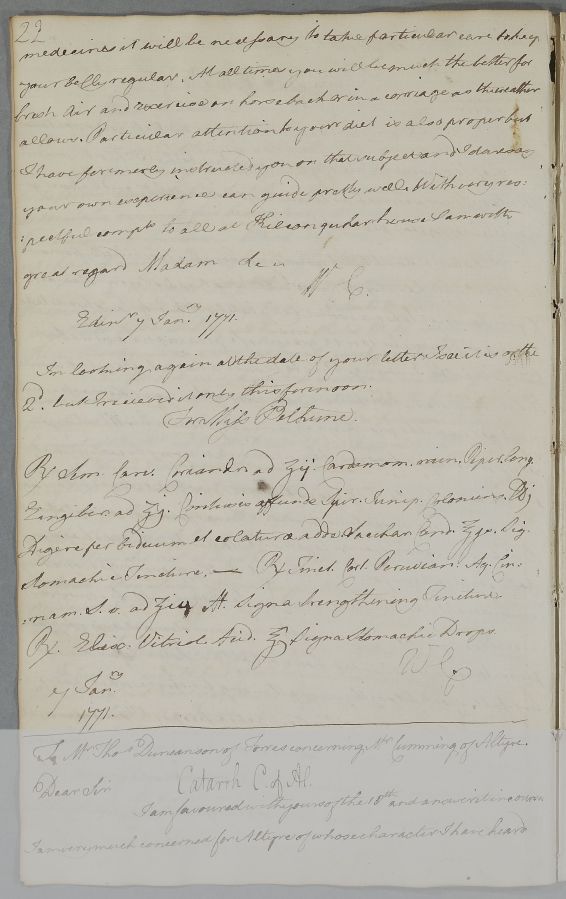 22
medecines it will be necessary to take particular care to keep
your Belly regular. At all times you will be much the better for
fresh Air and exercise on horseback or in a carriage as the weather
allows. Particular attention to your diet is also proper but
I have formerly instructed you on that subject and I daresay
your own experience can guide pretty well. With very res:
:pectful compts to all at Kilconquhar house I am with
great regard Madam &c
W C.
Edinr 7 Janry 1771.
In looking again at the date of your letter I see it is of the
2d. but I received it only this forenoon.
For Miss Bethune.
Rx Sem. Carv. Coriandr. ad ʒij. Cardamom. min. Piper. long.
Zingiber. ad ʒj. Contusis affunde Spir. Junip. Coloniens. ℔j
Digere per biduum et colaturæ adde Sacchar. Cand. Sig.
Stomachic Tincture. — Rx Tinct. Cort. Peruvian. Aq. Cin:
:nam. S. v. ad M. Signa Strengthening Tincture
Rx. Elix. Vitriol. Acid. Signa Stomachic Drops.
WC
7 Janry
1771.
To Mr Thos Duncanson of Forres concerning Mr Cumming of Altyre.
Dear Sir Catarrh C. of Al.
I am favoured with yours of the 18th and answer it in course
I am very much concerned for Altyre of whose character I have heard